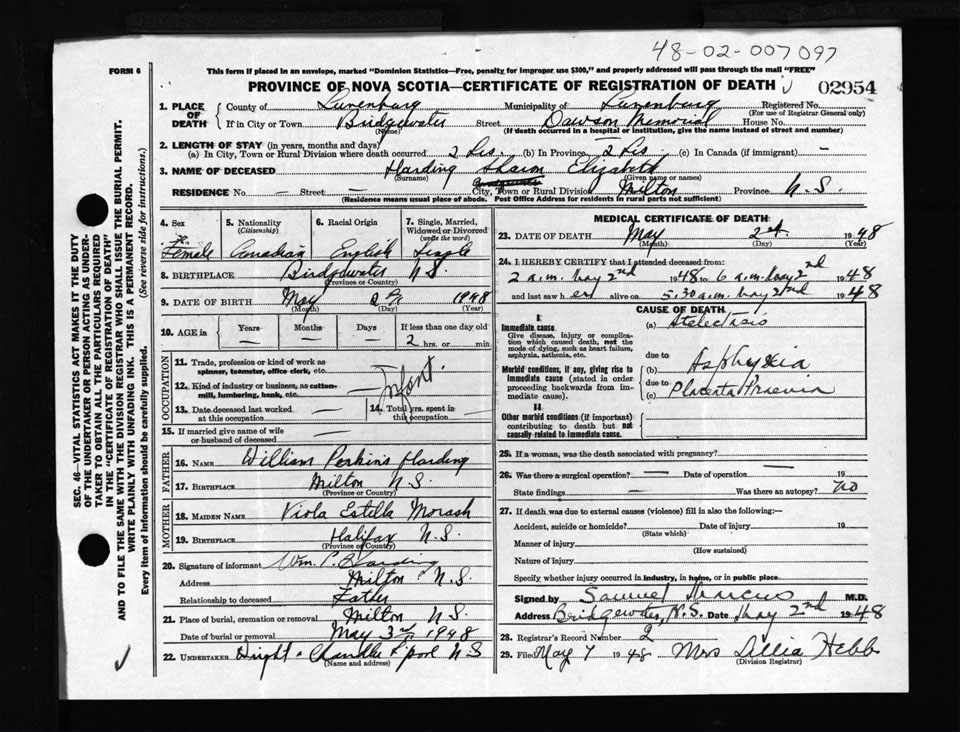 48-02-007097
FORM 6
This form if placed in an envelope, marked "Dominion Statistics—Free, penalty for improper use $300," and properly addressed will pass through the mail "FREE"
PROVINCE OF NOVA SCOTIA—CERTIFICATE OF REGISTRATION OF DEATH 02954
1. PLACE OF DEATH County of Lunenburg Municipality of Lunenburg Registered No.
(For use of Registrar General only)
If in City or Town Bridgewater Street Dawson Memorial House No.
(Name) (If death occurred in a hospital or institution, give the name instead of street and number)
2. LENGTH OF STAY (in years, months and days)
(a) In City, Town or Rural Division where death occurred 2 hrs. (b) In Province 2 hrs. (c) In Canada (if immigrant) —
3. NAME OF DECEASED Harding Sharon Elizabeth
(Surname) (Given name or names)
RESIDENCE No. — Street — City, Town or Rural Division Milton Province N.S.
(Residence means usual place of abode. Post Office Address for residents in rural parts not sufficient)
4. Sex Female
5. Nationality (Citizenship) Canadian
6. Racial Origin English
7. Single, Married, Widowed or Divorced (write the word) Single
8. BIRTHPLACE Bridgewater N.S.
(Province or Country)
9. DATE OF BIRTH May 2nd 1948
(Month) (Day) (Year)
10. AGE in Years — Months — Days — If less than one day old 2 hrs. or min.
OCCUPATION
11. Trade, profession or kind of work as spinner, teamster, office clerk, etc.
Infant
12. Kind of industry or business, as cotton-mill, lumbering, bank, etc.
13. Date deceased last worked at this occupation —
14. Total yrs. spent in this occupation
15. If married give name of wife or husband of deceased —
FATHER
16. NAME William Perkins Harding
17. BIRTHPLACE Milton N.S.
(Province or Country)
MOTHER
18. MAIDEN NAME Viola Estella Morash
19. BIRTHPLACE Halifax N.S.
(Province or Country)
20. Signature of informant Wm. P. Harding
Address Milton N.S.
Relationship to deceased Father
21. Place of burial, cremation or removal Milton N.S.
Date of burial or removal May 3rd 1948
22. UNDERTAKER Chandler L'pool N.S.
(Name and address)
MEDICAL CERTIFICATE OF DEATH
23. DATE OF DEATH May 2nd 1948
(Month) (Day) (Year)
24. I HEREBY CERTIFY that I attended deceased from:
2 a.m. May 2nd 1948 to 6 a.m. May 2nd 1948
and last saw her alive on 5.30 a.m. May 2nd 1948
CAUSE OF DEATH
I.
Immediate cause
Give disease, injury or complication which caused death, not the mode of dying, such as heart failure, asphyxia, asthenia, etc.
(a) Atelectasis
due to
Morbid conditions, if any, giving rise to immediate cause (stated in order proceeding backwards from immediate cause).
(b) Asphyxia
due to
(c) Placenta Praevia
II.
Other morbid conditions (if important) contributing to death but not causally-related to immediate cause.
25. If a woman, was the death associated with pregnancy?
26. Was there a surgical operation? — Date of operation — 19
State findings — Was there an autopsy? no
27. If death was due to external causes (violence) fill in also the following:—
Accident, suicide or homicide? Date of injury 19
(State which)
Manner of injury
(How sustained)
Nature of injury
Specify whether injury occurred in industry, in home, or in public place.
Signed by Samuel Marcus M.D.
Address Bridgewater, N.S. Date May 2nd 1948
28. Registrar's Record Number 2
29. Filed May 7 1948 Mrs Lillia Hebb
(Division Registrar)
SEC. 46—VITAL STATISTICS ACT MAKES IT THE DUTY
OF THE UNDERTAKER OR PERSON ACTING AS UNDER-
TAKER TO OBTAIN ALL THE PARTICULARS REQUIRED
IN THE "CERTIFICATE OF REGISTRATION OF DEATH"
AND TO FILE THE SAME WITH THE DIVISION REGISTRAR WHO SHALL ISSUE THE BURIAL PERMIT.
WRITE PLAINLY WITH UNFADING INK. THIS IS A PERMANENT RECORD.
Every item of information should be carefully supplied. (See reverse side for instructions.)